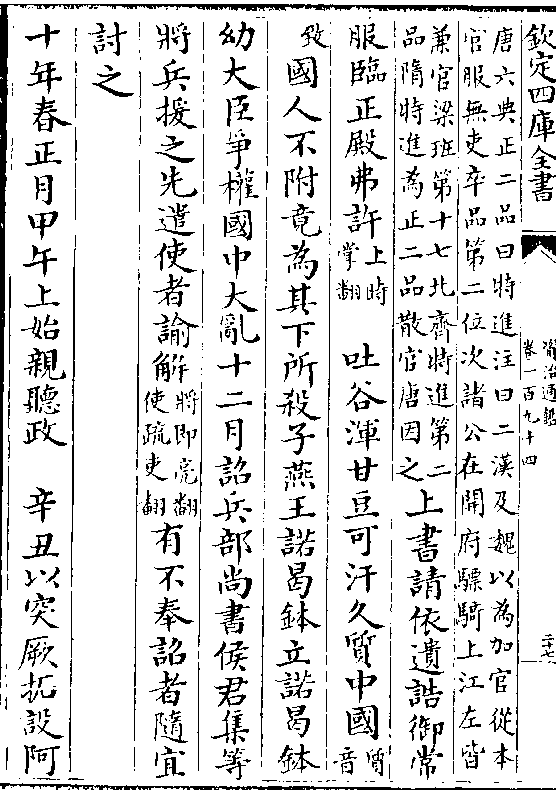 欽定四庫全書
資治通鑑
卷一百九十四
二十七
唐六典正二品曰特進注曰二漢及魏以為加官從本
官服無吏卒品第二位次諸公在開府驃騎上江左皆
兼官梁班第十七北齊特進第二
品隋特進為正二品散官唐因之
上書請依遺誥御常
服臨正殿弗許上時掌翻 吐谷渾甘豆可汗久質中國質音
致國人不附竟為其下所殺子燕王諾曷鉢立諾曷鉢
幼大臣爭權國中大亂十二月詔兵部尚書侯君集等
將兵援之先遣使者諭解將即亮翻使疏吏翻有不奉詔者隨宜
討之
十年春正月甲午上始親聽政 辛丑以突厥拓設阿